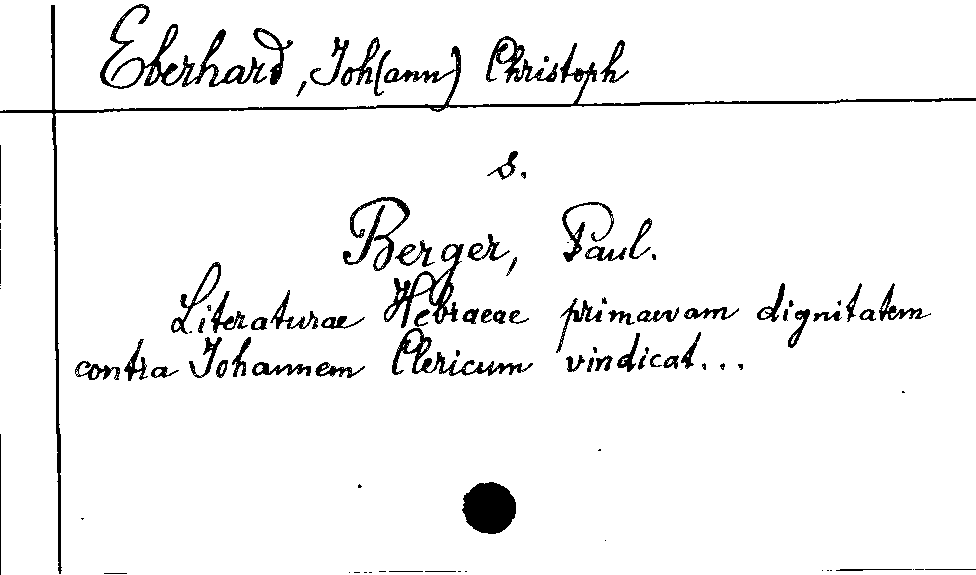 Eberhard, Joh(ann) Christoph
s.
Berger, Paul.
Literaturae Hebraeae primaevam dignitatem
contra Johannem Clericum vindicat...